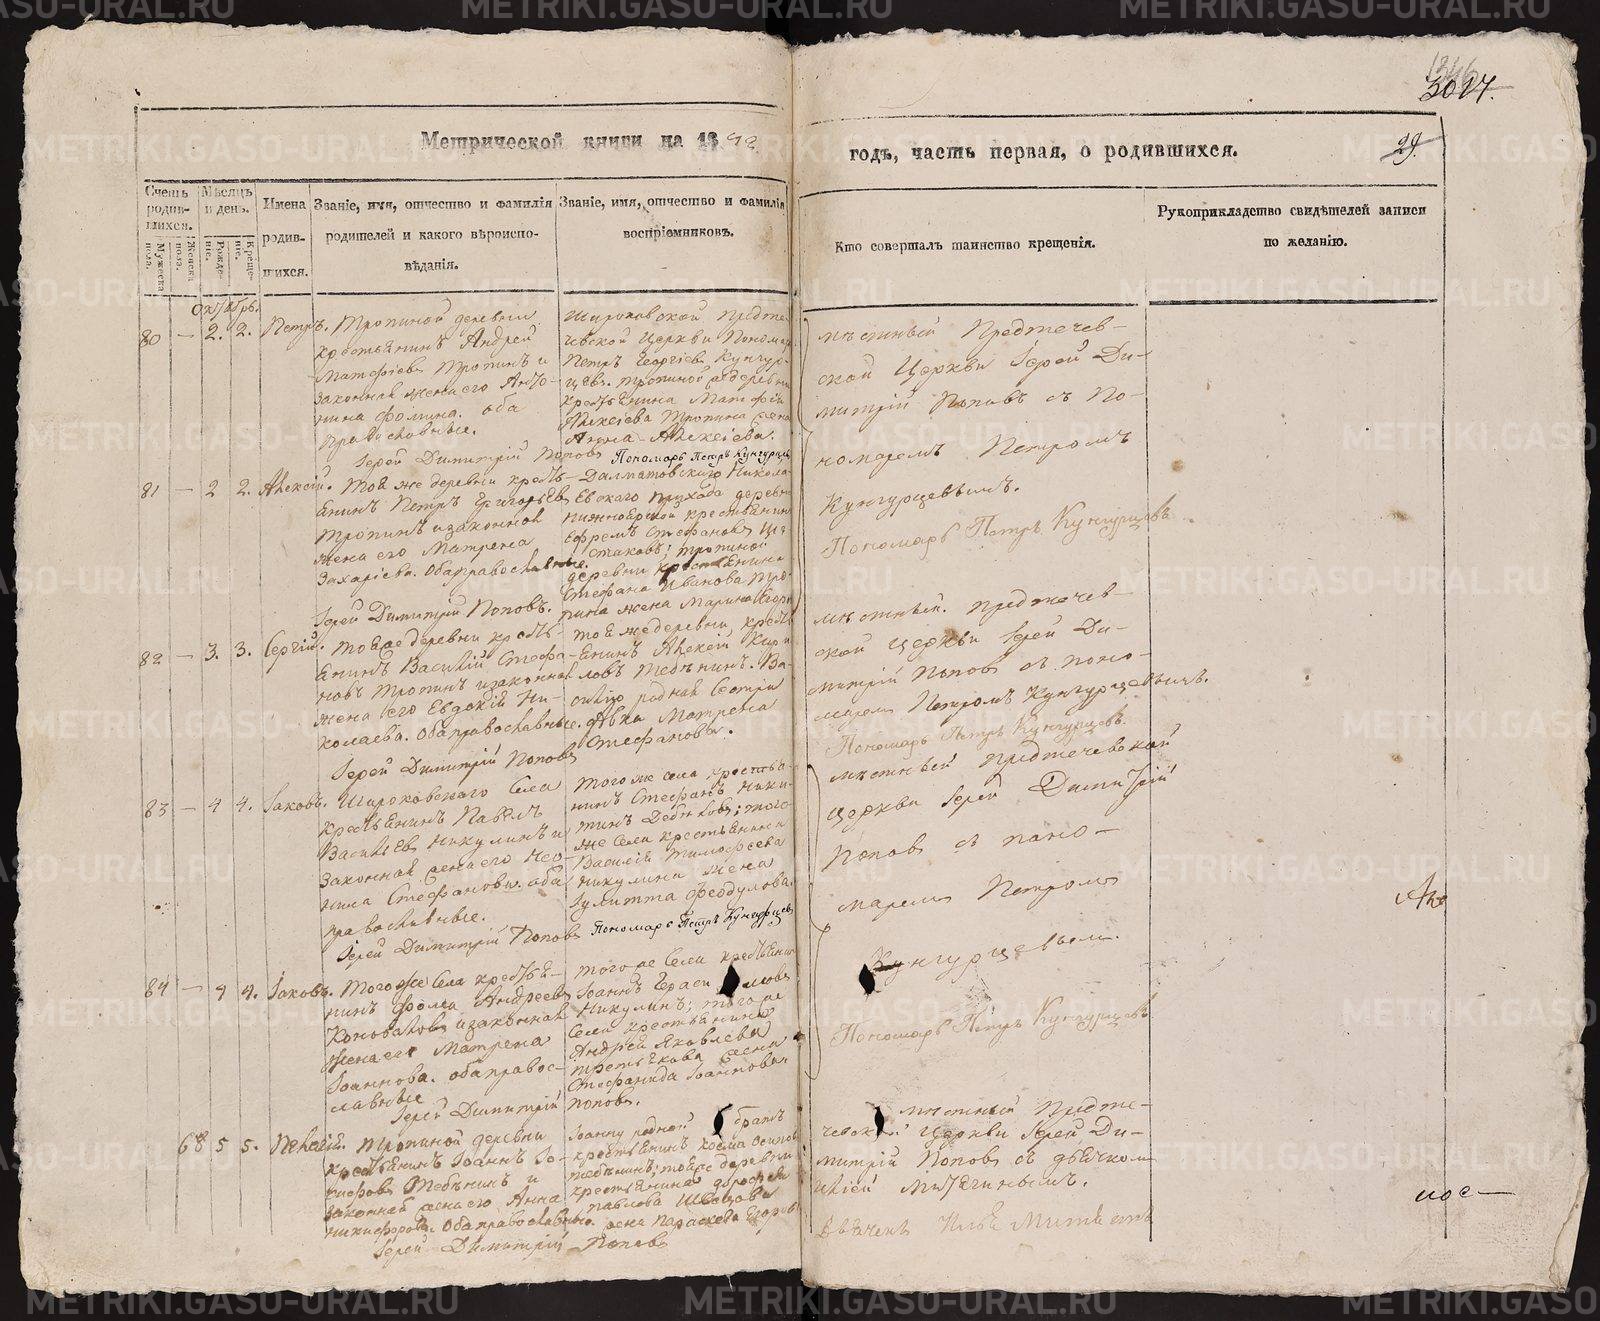 Метрической книги на 1892
годъ, часть первая, о родившихся.
3017.
29.
Счетъ родив-шихся.
Мужеска пола.
Женска пола.
Мѣсяцъ и день.
Рожде-ніе.
Креще-ніе.
Имена
родив-
шихся.
Званіе, имя, отчество и фамилія
родителей и какого вѣроиспо-
вѣданія.
Званіе, имя, отчество и фамилія
воспріемниковъ.
Кто совершалъ таинство крещенія.
Рукоприкладство свидѣтелей записи
по желанію.
Октябрь.
80 — 2. 2. Петръ.
Тропиной деревни
крестьянинъ Андрей
Матфіевъ Тропинъ и
законная жена его Анто-
нина Фомина. оба
православные.
Іерей Димитрій Поповъ
Широковской Предте-
чевской Церкви Пономарь
Петръ Георгіевъ Кунгур-
цевъ. Тропиной деревни
крестьянина Матфія
Алексіева Тропина жена
Анна Алексіева.
Пономарь Петръ Кунгурцевъ
мѣстный Предтечев-
ской Церкви Іерей Ди-
митрій Поповъ съ По-
номаремъ Петромъ
Кунгурцевымъ.
Пономарь Петръ Кунгурцевъ
81 — 2 2. Алексій.
Той же деревни кресть-
янинъ Петръ Григорьевъ
Тропинъ и законная
жена его Матрена
Захаріева. Оба православные.
Іерей Димитрій Поповъ.
Далматовскаго Никола-
евскаго прихода деревни
крестьянинъ
Ефремъ Стефановъ
Тропиной
деревни крестьянина
Стефана Иванова Тро-
пина жена Марина
82 — 3. 3. Сергій.
Той же деревни кресть-
янинъ Василій Стефа-
новъ Тропинъ и законная
жена его Евдокія Ни-
колаева. Оба православные.
Іерей Димитрій Поповъ
той же деревни кресть-
янинъ Алексій Кири-
ловъ Тебѣнинъ. Ва-
силію родная Сестра
дѣвка Матрена
Стефанова.
мѣстный Предтечев-
ской Церкви Іерей Ди-
митрій Поповъ съ поно-
маремъ Петромъ Кунгурцевымъ.
Пономарь Петръ Кунгурцевъ.
83 — 4 4. Іаковъ.
Широковскаго Села
крестьянинъ Павелъ
Васильевъ Никулинъ и
законная жена его Нео-
нила Стефанова. оба
православные.
Іерей Димитрій Поповъ
того же села крестья-
нинъ Стефанъ Ники-
тинъ; того
же Села крестьянина
Василія Тимофеева
Никулина жена
Іулитта Феодулова.
Пономарь Петръ Кунгурцевъ
мѣстный Предтечевской
Церкви Іерей Димитрій
Поповъ съ поно-
маремъ Петромъ
Кунгурцевымъ.
Пономарь Петръ Кунгурцевъ
84 — 4 4. Іаковъ.
Того же Села крестья-
нинъ Фома Андреевъ
Коноваловъ и законная
жена его Матрена
Іоаннова. оба правос-
лавные
Іерей Димитрій Поповъ.
того же Села крестьянинъ
Іоаннъ Герасимовъ
Никулинъ; того же
Села крестьянина
Андрея Яковлева
Третьякова жена
Стефанида Іоаннова.
68 5 5. Пелагія.
Тропиной деревни
крестьянинъ Іоаннъ
Тебѣнинъ и
законная жена его Анна
Никифорова. Оба православные.
Іерей Димитрій Поповъ
Іоанну родной братъ
крестьянинъ Косма
Тебѣнинъ; той же деревни
крестьянина Дорофея
Павлова Швецова
жена Параскева Егорова
мѣстный Предте-
чевской Церкви Іерей Ди-
митрій Поповъ съ дьячкомъ